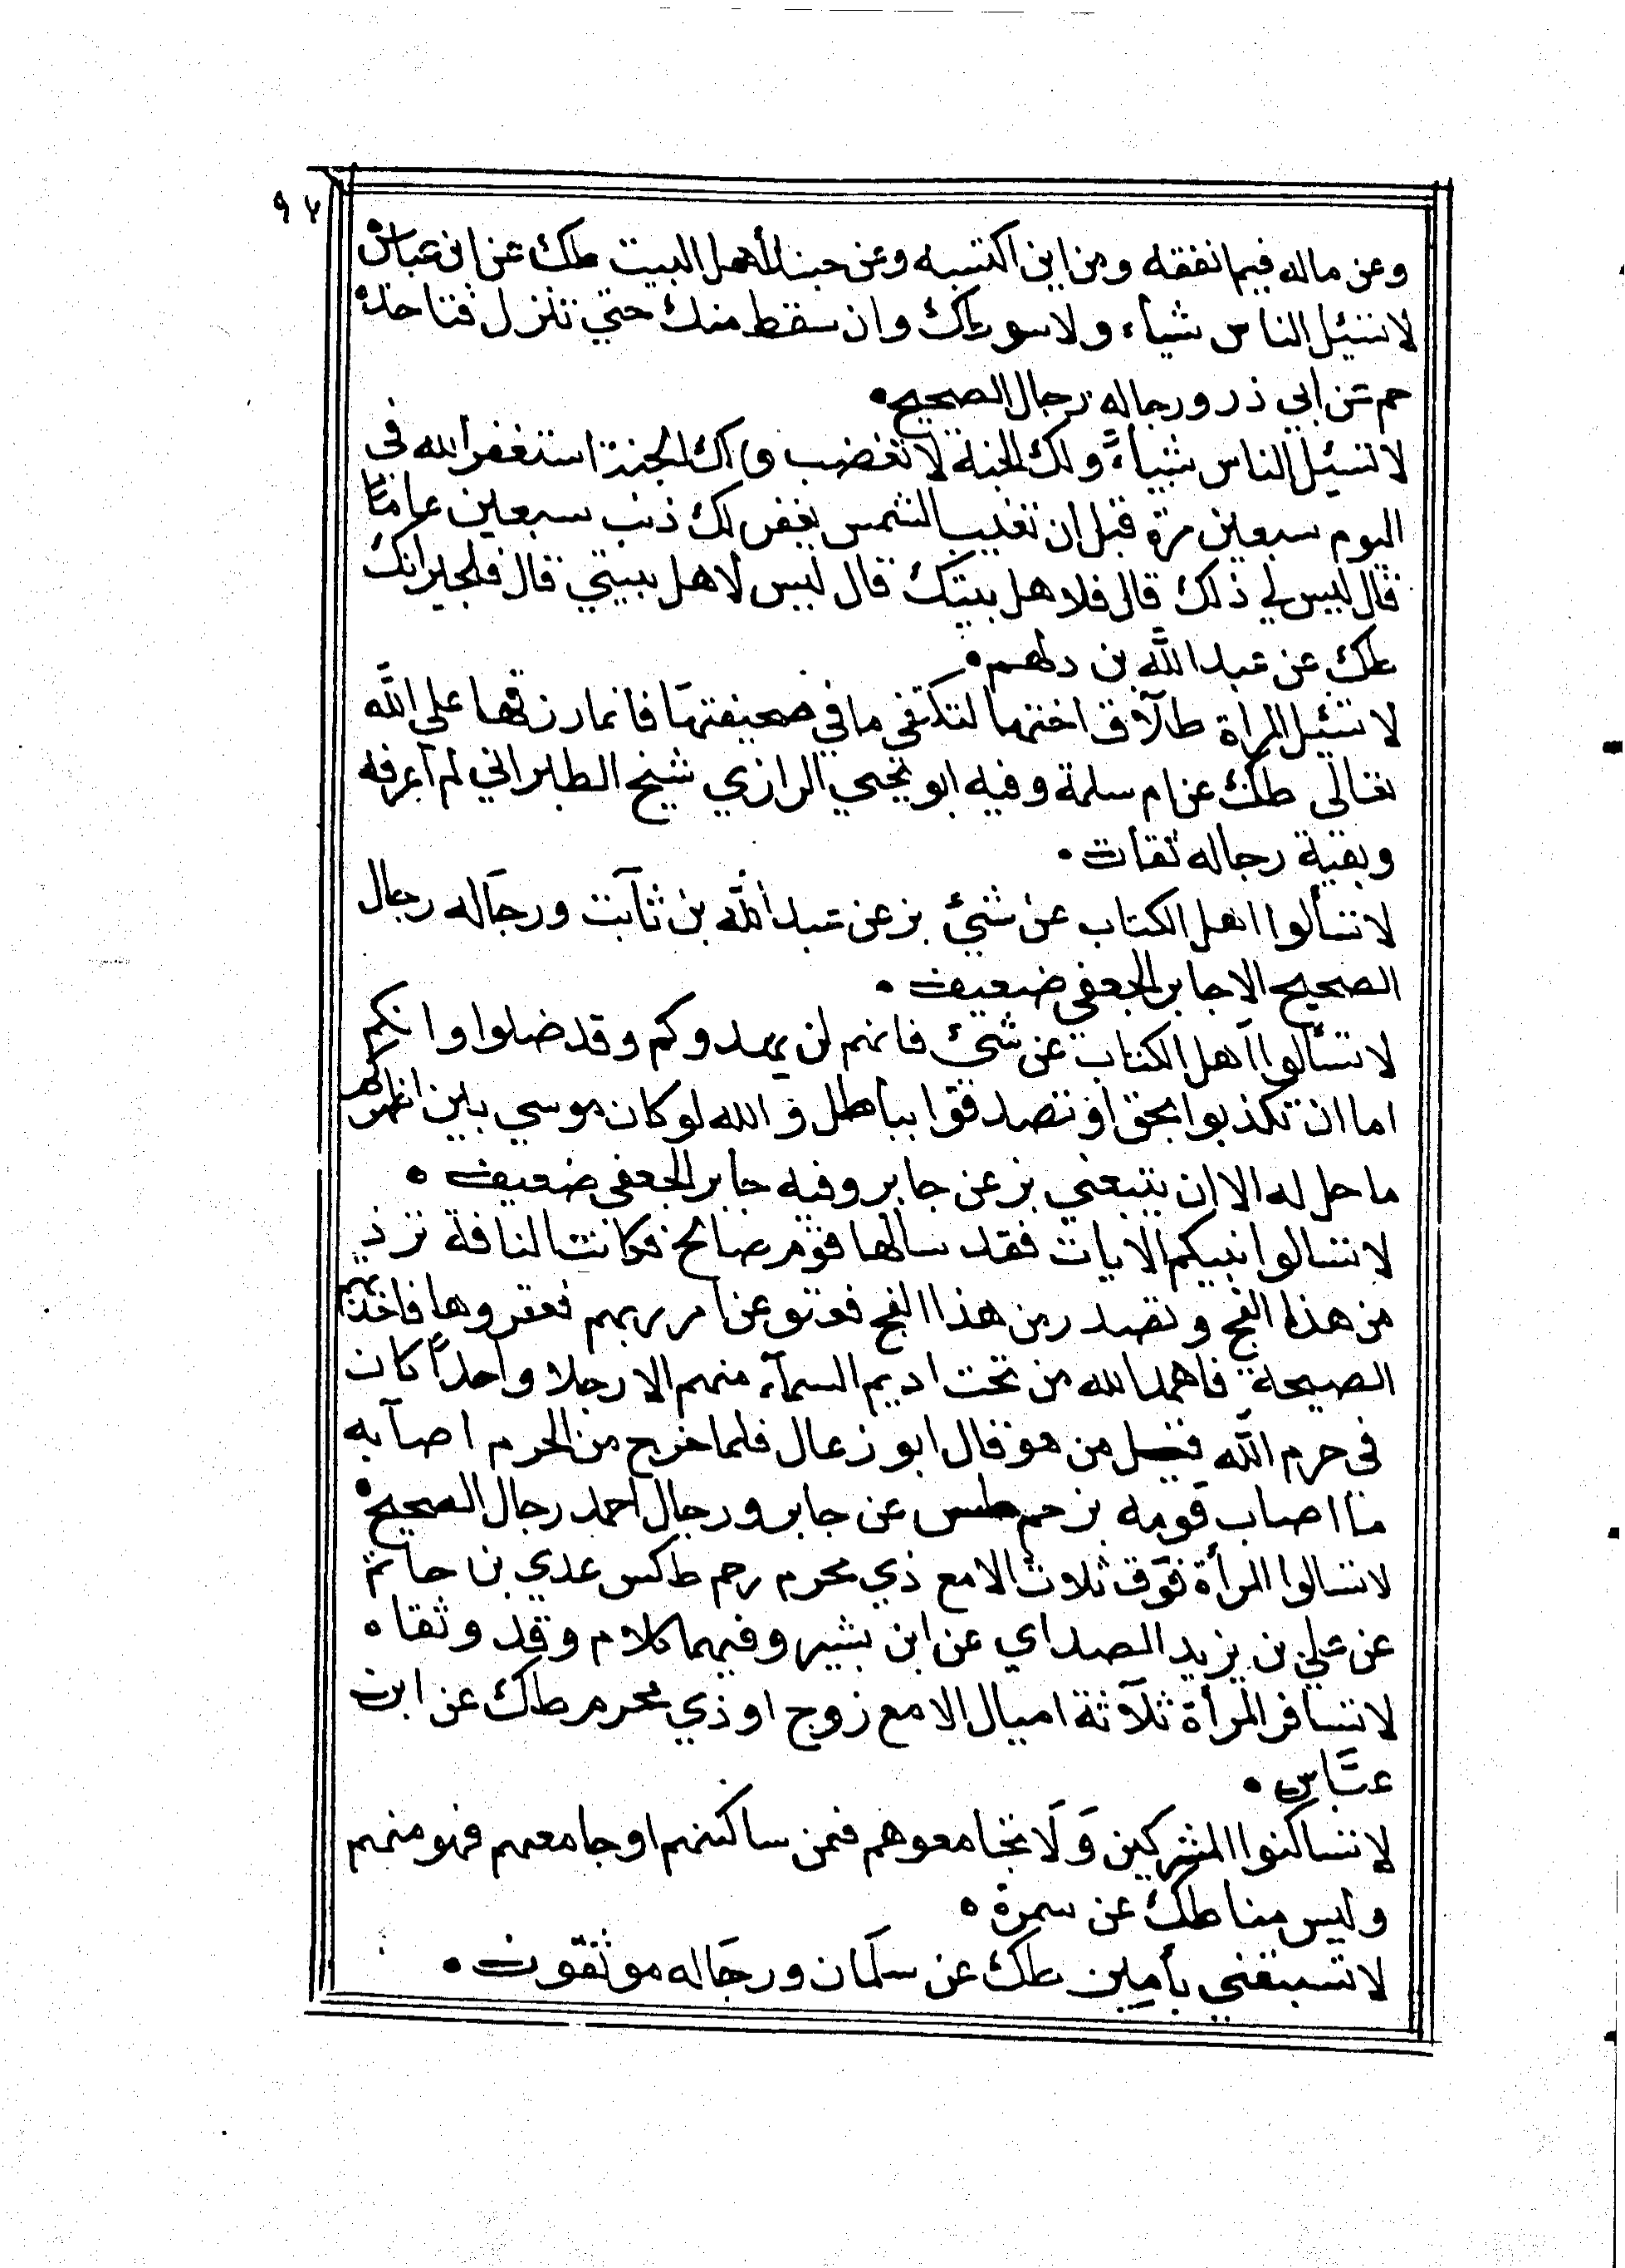 ٩٧
وعن ماله فيما نفقه ومن اين اكتسبه وعن حبنا لأهل البيت طك عن ابن عباس
لا تسئل الناس شيأ ولا سوطك وان سقط منك حتي تنزل فتاخذه
حم عن ابي ذر ورجاله رجال الصحيح
لا تسئل الناس شيأ ولك الجنة لا تغضب ولك الجنة استغفر الله في
اليوم سبعين مرة قبل ان تغيب الشمس يغفر لك ذنب سبعين عاما
قال ليس لي ذلك قال فلاهل بيتك قال ليس لاهل بيتي قال فلجيرانك
طك عن عبد الله بن دلهم
لا تسئل المرأة طلاق اختها لتكتفي ما في صحيفتها فانما رزقها علي الله
تعالى طك عن ام سلمة وفيه ابو يحيي الرازي شيخ الطبراني لم اعرفه
وبقية رجاله ثقات
لا تسألوا اهل الكتاب عن شئ بز عن عبد الله بن ثابت ورجاله رجال
الصحيح الا جابر الجعفي ضعيف
لا تسألوا اهل الكتاب عن شئ فانهم لن يهدوكم وقد ضلوا وانكم
اما ان تكذبوا بحق او تصدقوا بباطل والله لو كان موسي بين اظهركم
ما حل له الا ان يتبعني بز عن جابر وفيه جابر الجعفي ضعيف
لا تسالوا نبيكم الايات فقد سالها قوم صالح فكانت الناقة ترد
من هذا الفج وتصدر من هذا الفج فعتو عن امر ربهم فعقروها فاخذتهم
الصيحة فاهمد الله من تحت اديم السماء منهم الا رجلا واحدا كان
في حرم الله فقيل من هو قال ابو رغال فلما خرج من الحرم اصابه
ما اصاب قومه بز حم طس عن جابر ورجال احمد رجال الصحيح
لا تسالوا المرأة فوق ثلاث الا مع ذي محرم رحم طكس عدي بن حاتم
عن علي بن يزيد الصداي عن ابن بشير وفيهما كلام وقد وثقا
لا تسافر المرأة ثلاثة اميال الا مع زوج او ذي محرم طك عن ابن
عباس
لا تساكنوا المشركين ولا تجامعوهم فمن ساكنهم او جامعهم فهو منهم
وليس منا طك عن سمرة
لا تسبقني بأمين طك عن سلمان ورجاله موثقون